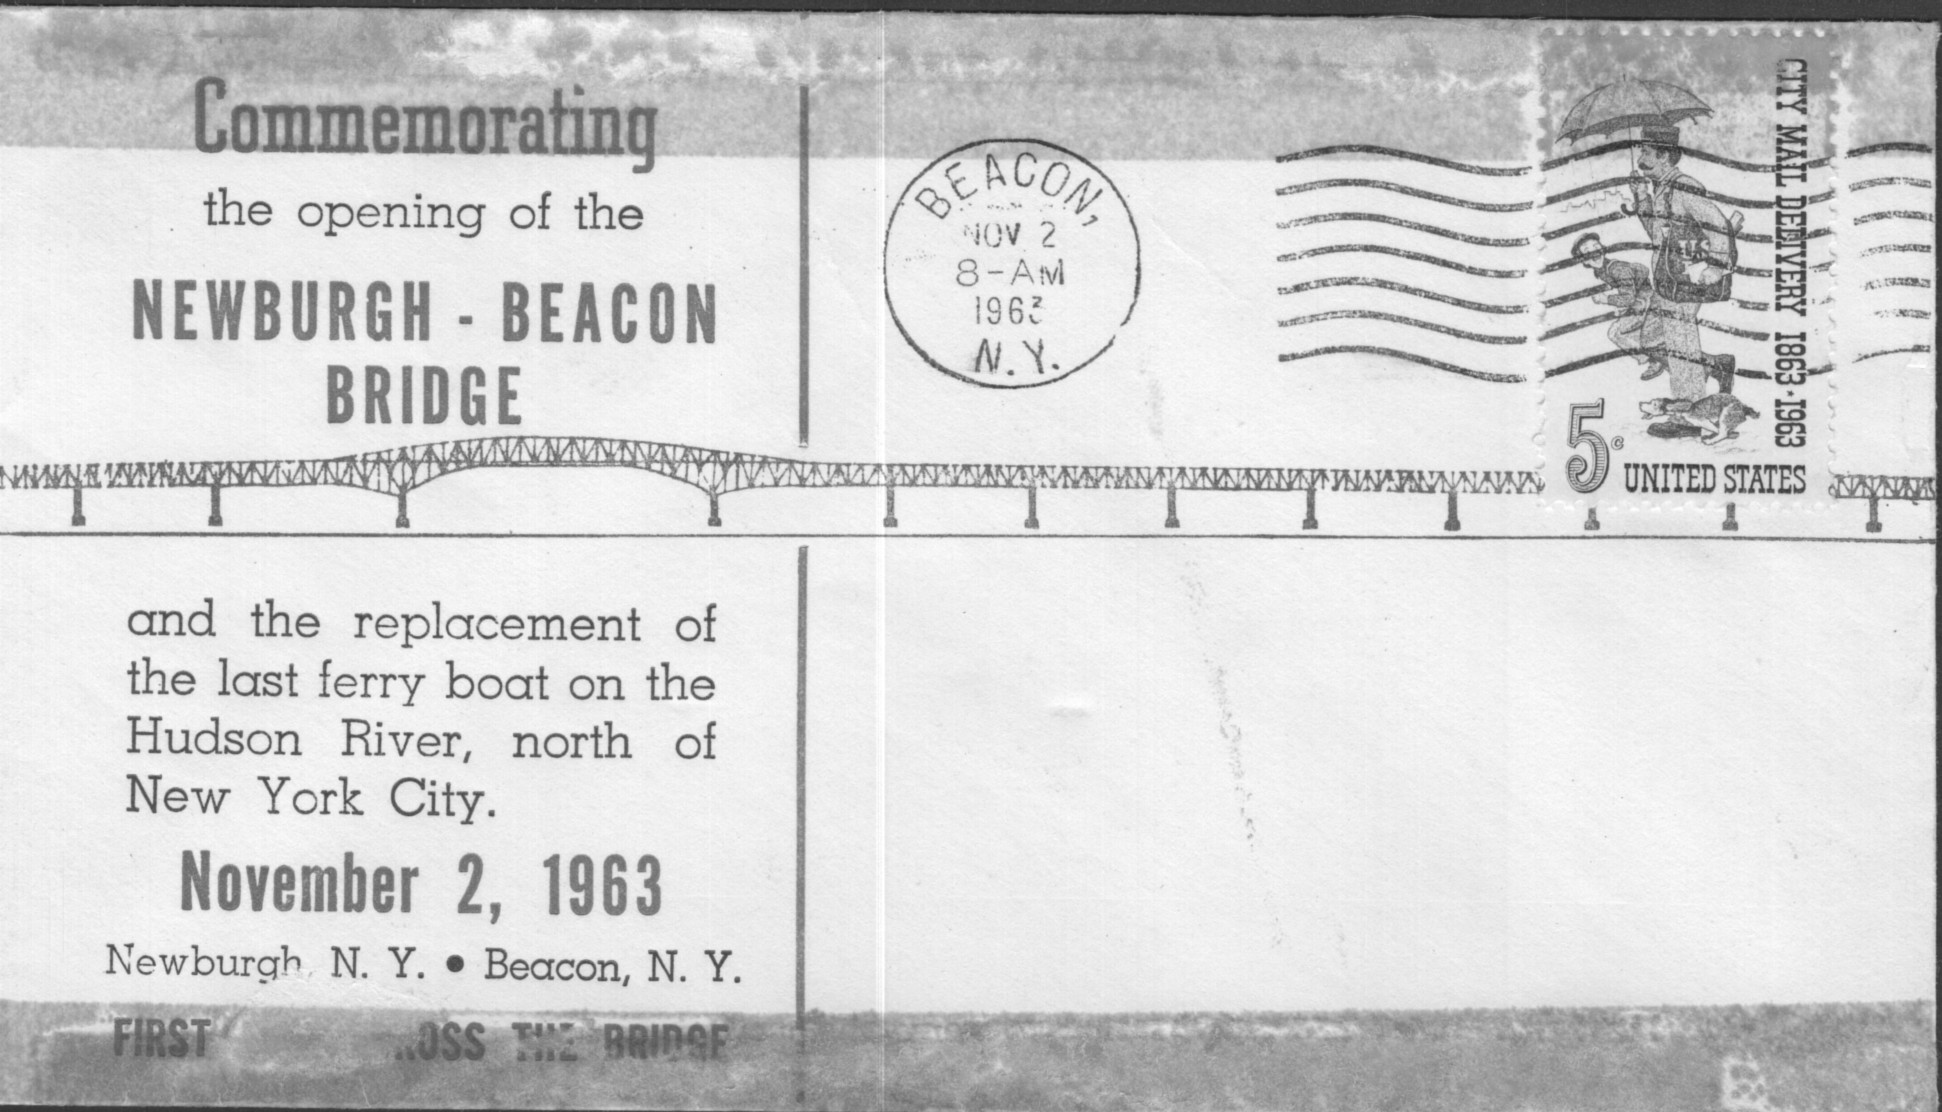 Commemorating
the opening of the
NEWBURGH - BEACON
BRIDGE
and the replacement of
the last ferry boat on the
Hudson River, north of
New York City.
November 2, 1963
Newburgh N. Y. • Beacon, N. Y.
FIRST THE BRIDGE
BEACON,
NOV 2
8-AM
1963
N. Y.
CITY MAIL DELIVERY 1863·1963
5c
UNITED STATES